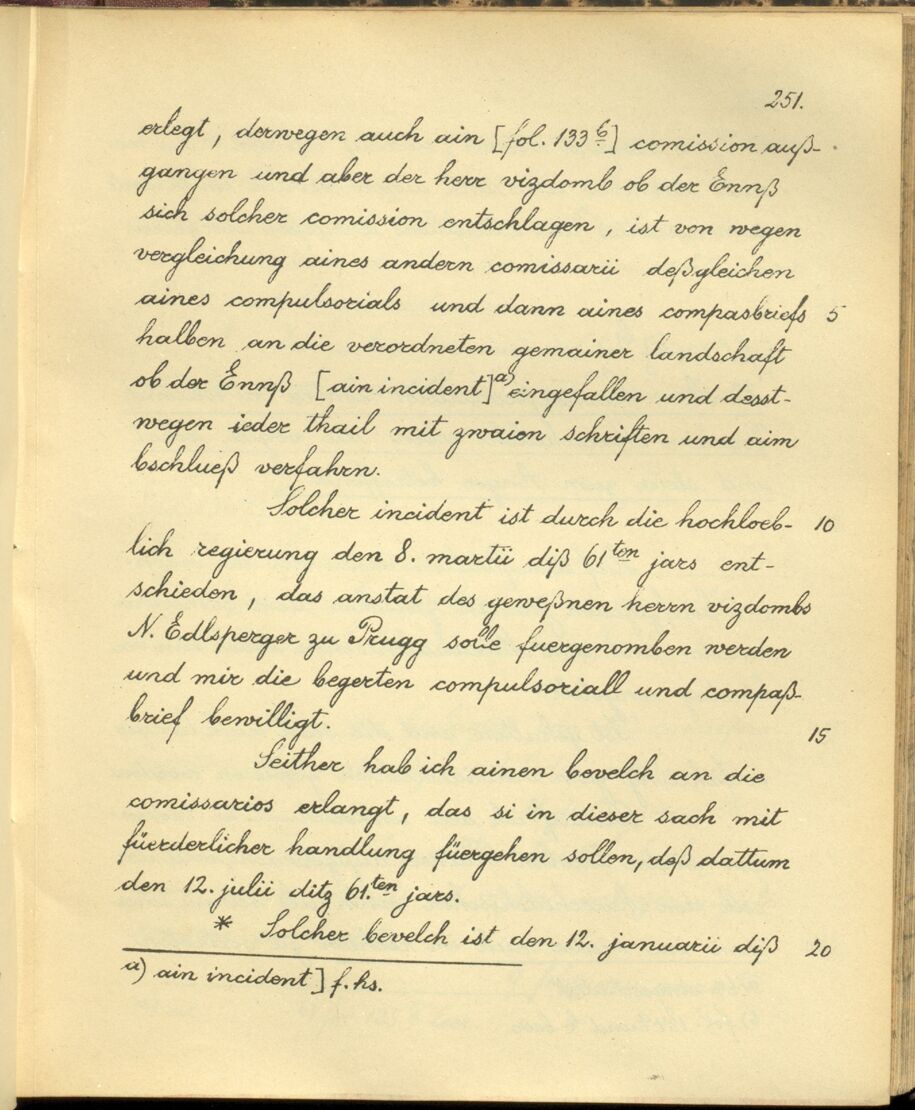 251.
erlegt, derwegen auch ain [fol. 133b] comission auß-
gangen und aber der herr vizdomb ob der Ennß
sich solcher comission entschlagen, ist von wegen
vergleichung aines andern comissarii deßgleichen
aines compulsorials und dann aines compasbriefs 5
halben an die verordneten gemainer landschaft
ob der Ennß [ain incident]a) eingefallen und desst-
wegen ieder thail mit zwaien schriften und aim
bschlueß verfahrn.
Solcher incident ist durch die hochloeb- 10
lich regierung den 8. martii diß 61ten jars ent-
schieden, das anstat des geweßnen herrn vizdombs
N. Edlsperger zu Prugg solle fuergenomben werden
und mir die begerten compulsoriall und compaß-
brief bewilligt. 15
Seither hab ich ainen bevelch an die
comissarios erlangt, das si in dieser sach mit
füerderlicher handlung füergehen sollen, deß dattum
den 12. julii ditz 61.ten jars.
* Solcher bevelch ist den 12. januarii diß 20
a) ain incident] f. hs.